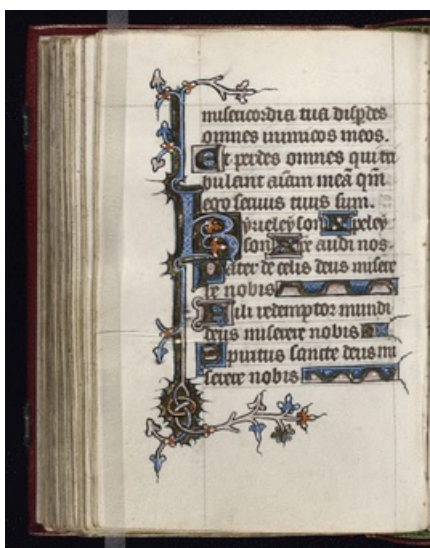 misericordia tua disp̱des
omnes inimicos meos.
Et perdes omnes qui tri
bulant aīam meā qm̄
ego servus tuus sum.
Kyrieleyson Xpeley
son Xpe audi nos.
Pater de celis deus misere
re nobis
Fili redemptor mundi
deus miserere nobis
Spiritus sancte deus mi
serere nobis